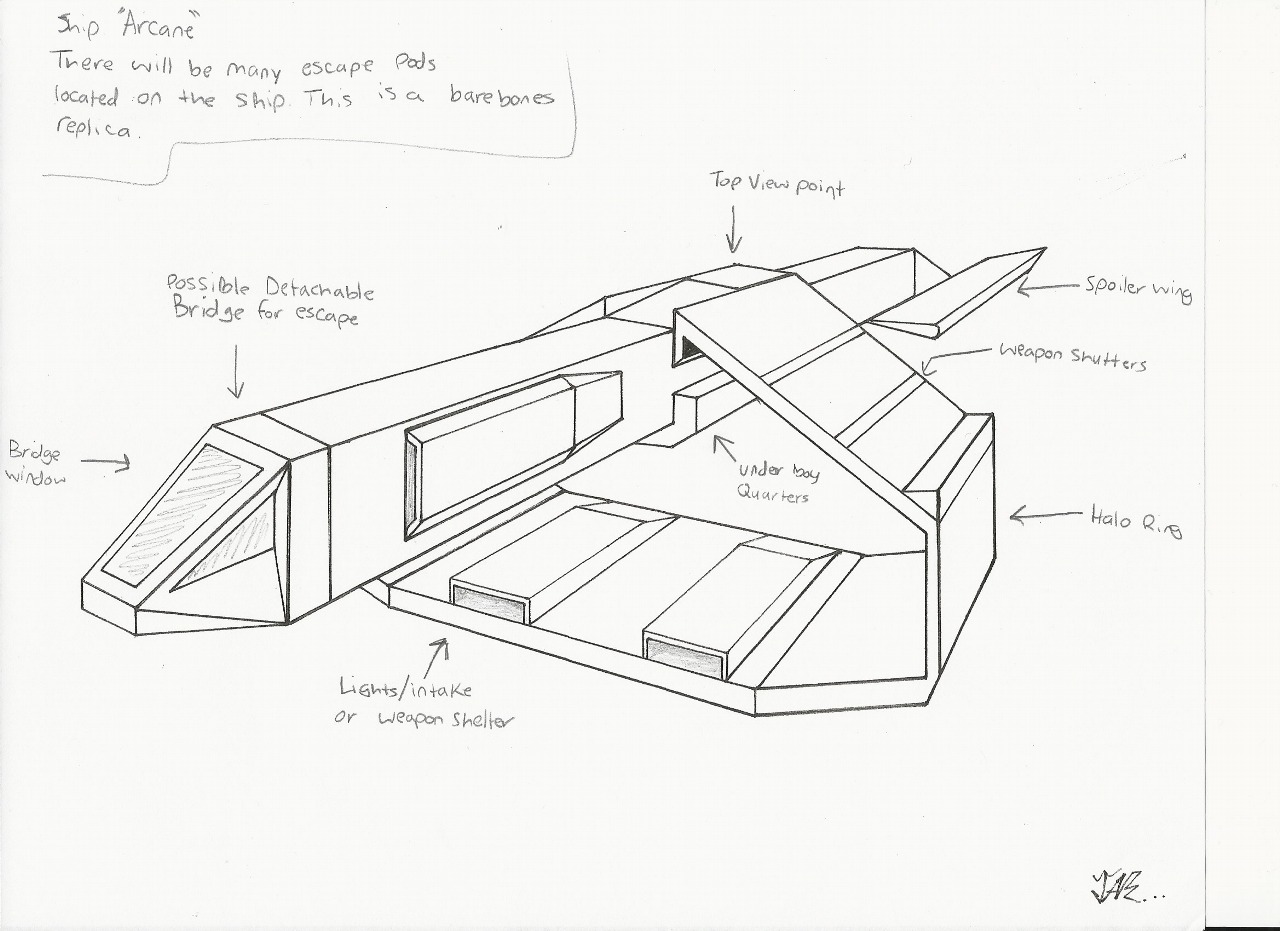 Ship "Arcane"
There will be many escape pods
located on the ship. This is a barebones
replica.
Top View point
Possible Detachable
Bridge for escape
Spoiler wing
Weapon Shutters
Bridge
window
under bay
Quarters
Halo Ring
Lights/intake
or weapon shelter